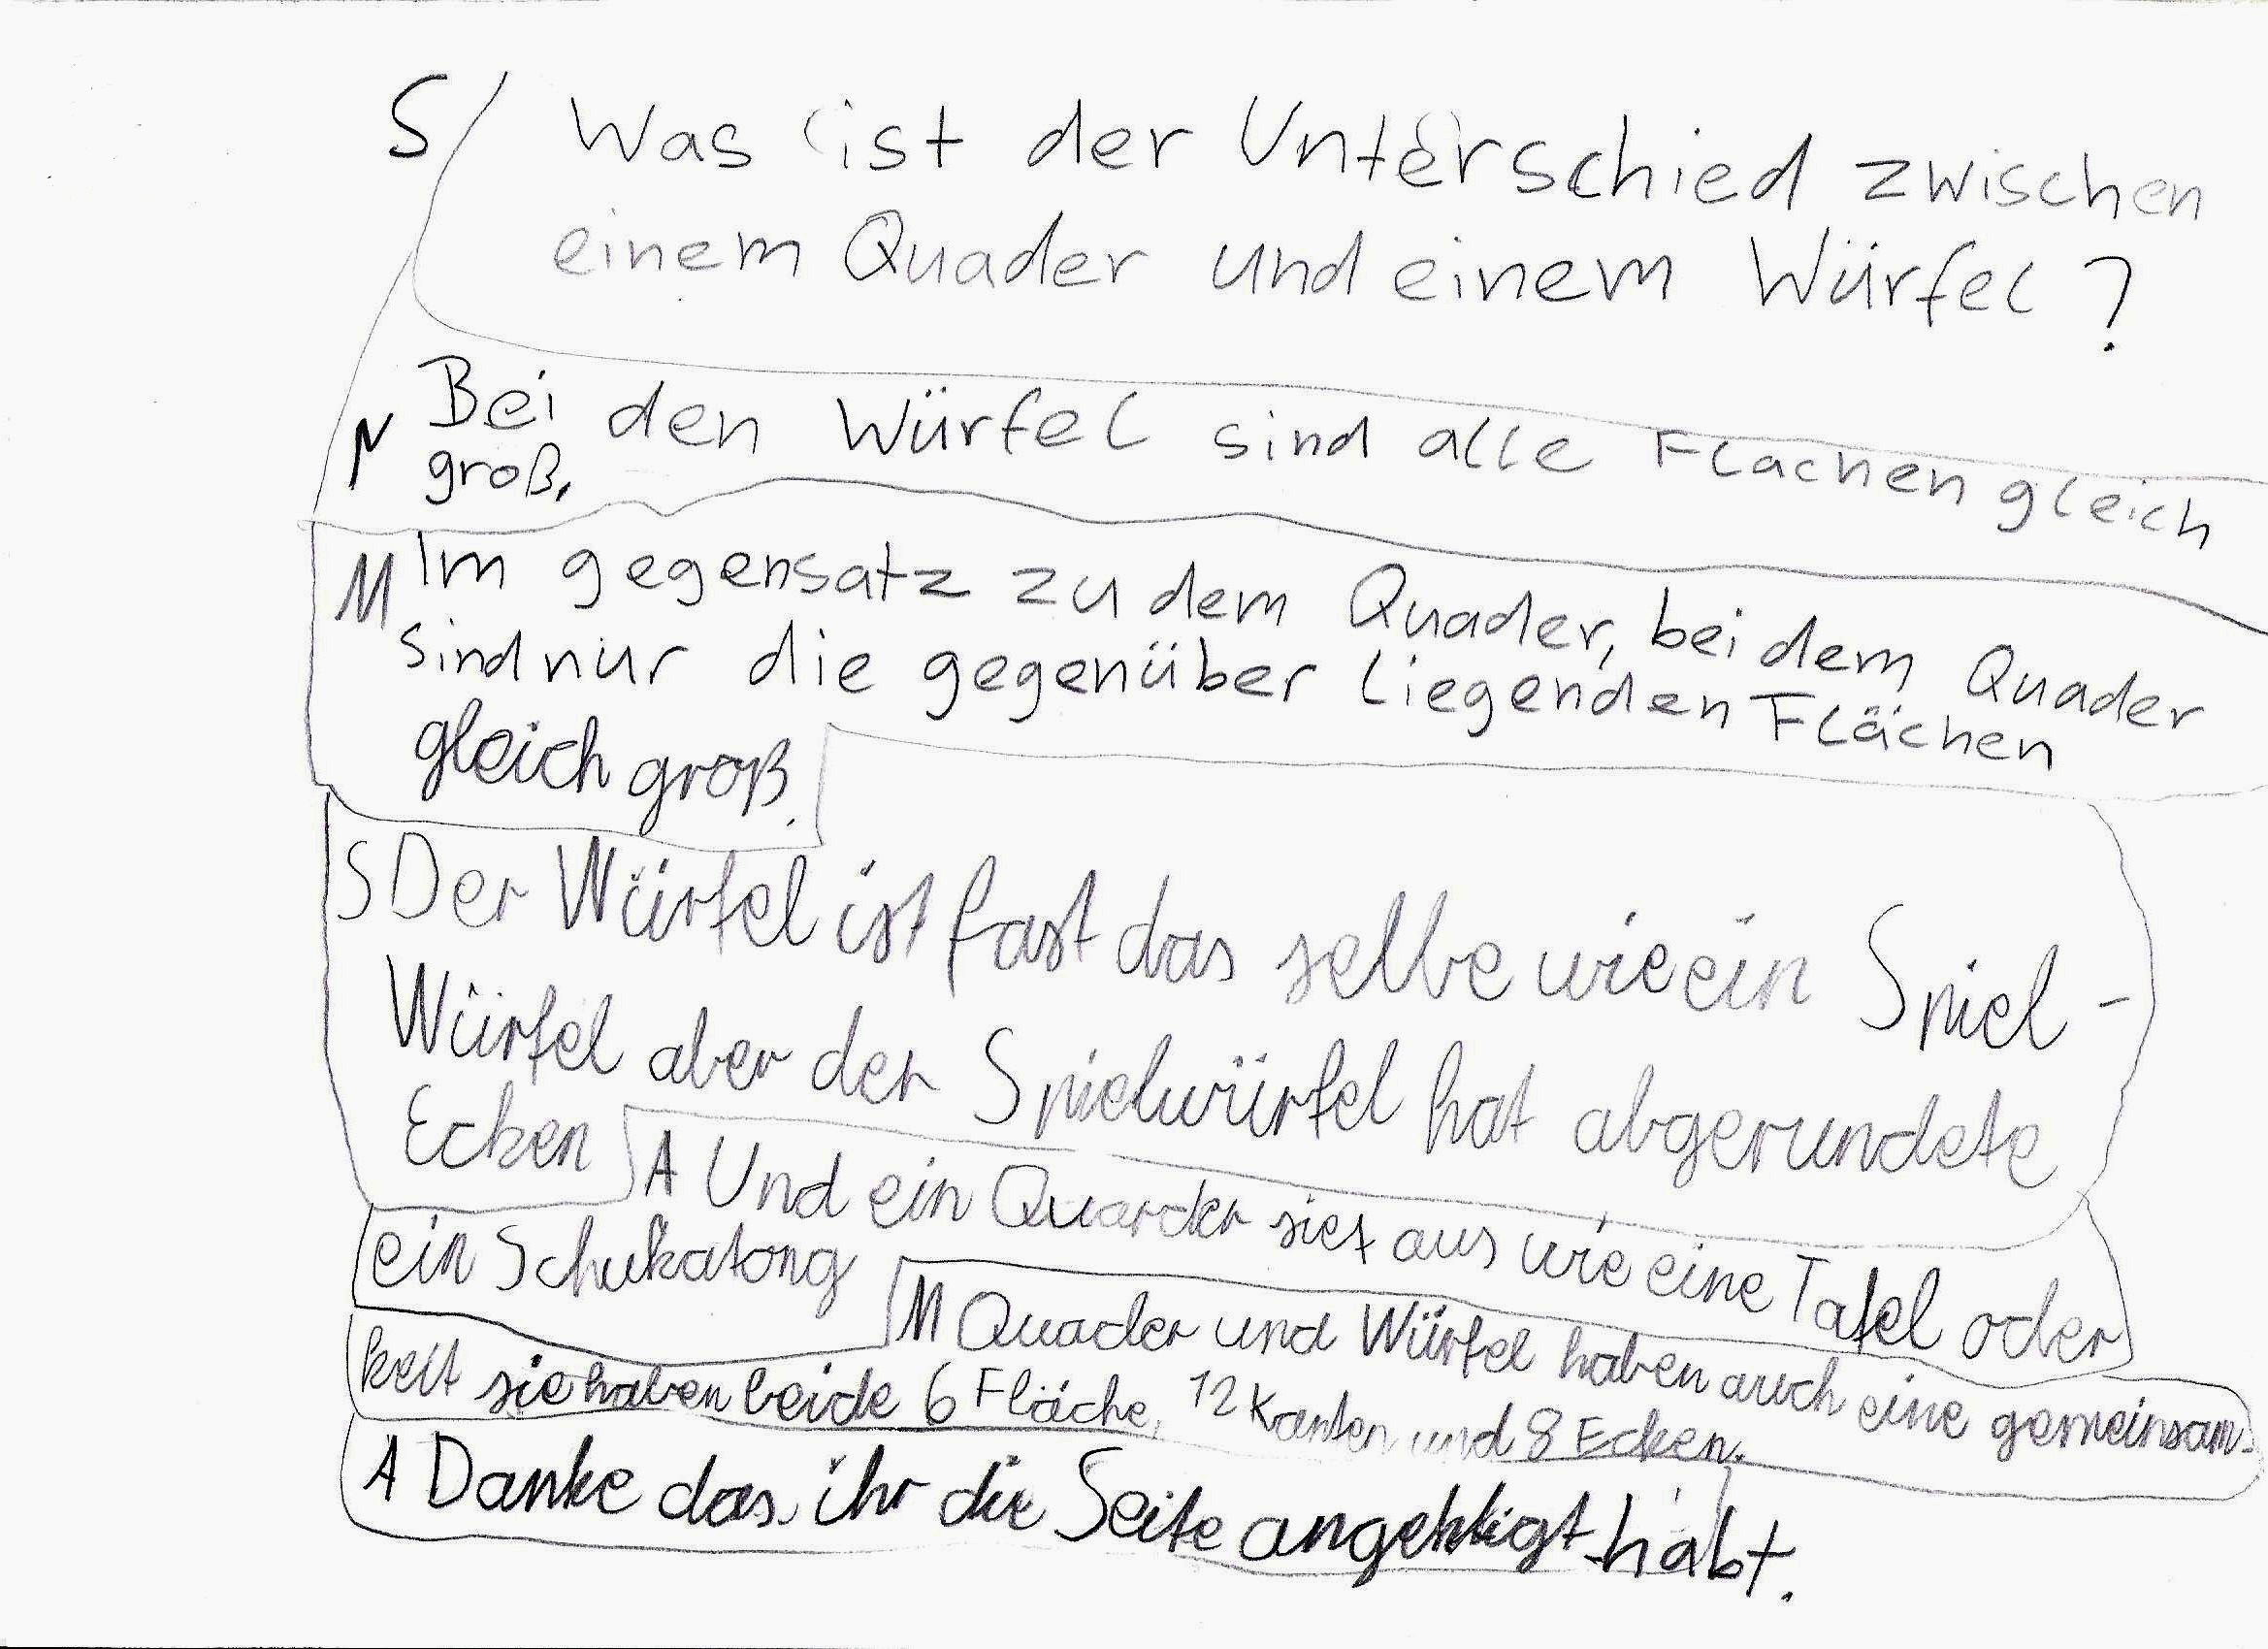 S Was ist der Unterschied zwischen
einem Quader und einem Würfel?
N Bei den Würfel sind alle Flachen gleich
groß.
M Im gegensatz zu dem Quader, bei dem Quader
sind nur die gegenüber liegenden Flächen
gleich groß.
S Der Würfel ist fast das selbe wie ein Spiel-
Würfel aber der Spielwürfel hat abgerundete
Ecken A Und ein Quarder siet aus wie eine Tafel oder
ein Schukatong M Quader und Würfel haben auch eine gemeinsam-
keit sie haben beide 6 Fläche, 12 Kanten und 8 Ecken.
A Danke das ihr die Seite angekligt habt.